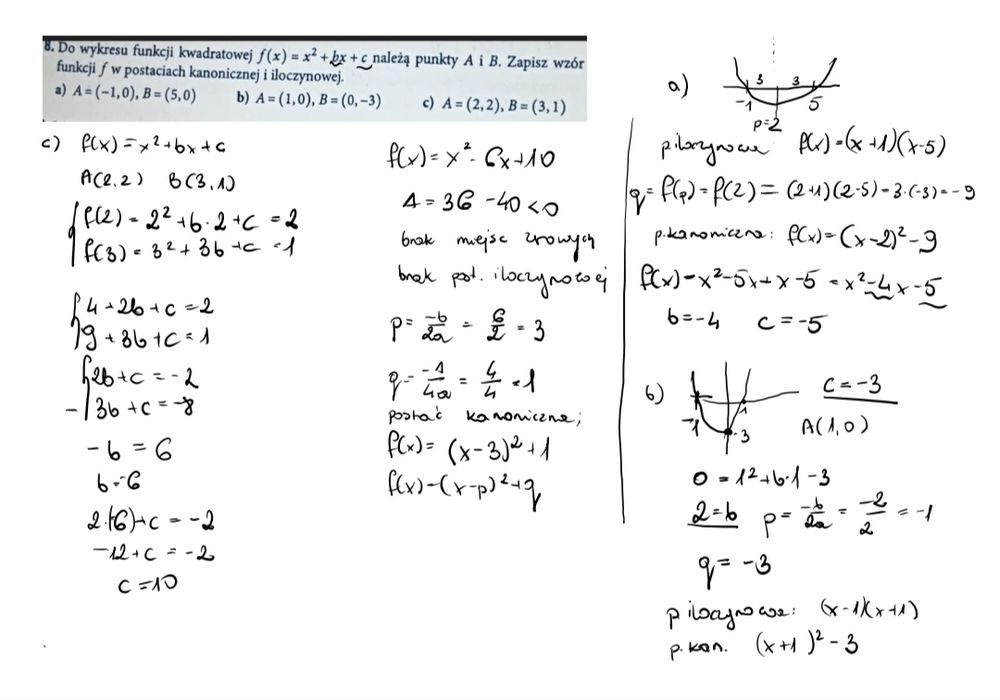 8. Do wykresu funkcji kwadratowej f(x) = x² + bx + c należą punkty A i B. Zapisz wzór
funkcji f w postaciach kanonicznej i iloczynowej.
a) A = (−1,0), B = (5,0) b) A = (1,0), B = (0,−3) c) A = (2,2), B = (3,1)
c) f(x) = x² + bx + c
A(2,2) B(3,1)
f(2) = 2² + b·2 + c = 2
f(3) = 3² + 3b + c = 1
4 + 2b + c = 2
9 + 3b + c = 1
2b + c = −2
− 3b + c = −8
−b = 6
b = −6
2·(−6) + c = −2
−12 + c = −2
c = 10
f(x) = x² − 6x + 10
Δ = 36 − 40 < 0
brak miejsc zerowych
brak post. iloczynowej
p = −b/2a = 6/2 = 3
q = −Δ/4a = 4/4 = 1
postać kanoniczna;
f(x) = (x−3)² + 1
f(x) = (x−p)² + q
a) 3 3
−1 5
p=2
p iloczynowa f(x) = (x+1)(x−5)
q = f(p) = f(2) = (2+1)(2−5) = 3·(−3) = −9
p. kanoniczna: f(x) = (x−2)² − 9
f(x) = x² − 5x + x − 5 = x² − 4x − 5
b = −4 c = −5
b) −1 1 −3 c = −3
A(1,0)
0 = 1² + b·1 − 3
2 = b p = −b/2a = −2/2 = −1
q = −3
p iloczynowa: (x−1)(x+1)
p. kan. (x+1)² − 3